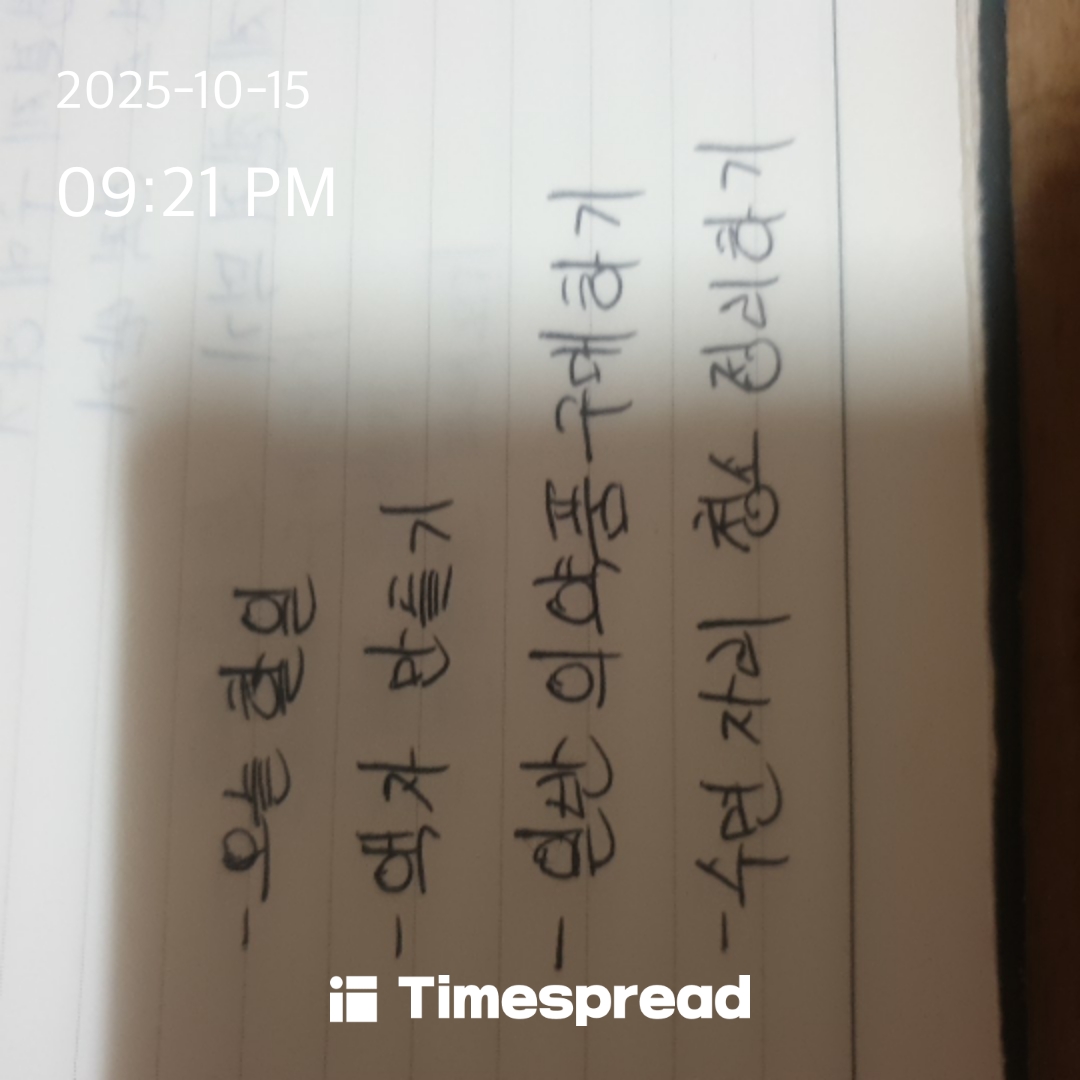 2025-10-15
09:21 PM
- 오늘 할일
- 액자 만들기
- 일반 의약품 구매하기
- 수면 자리 청소 정리하기
Timespread